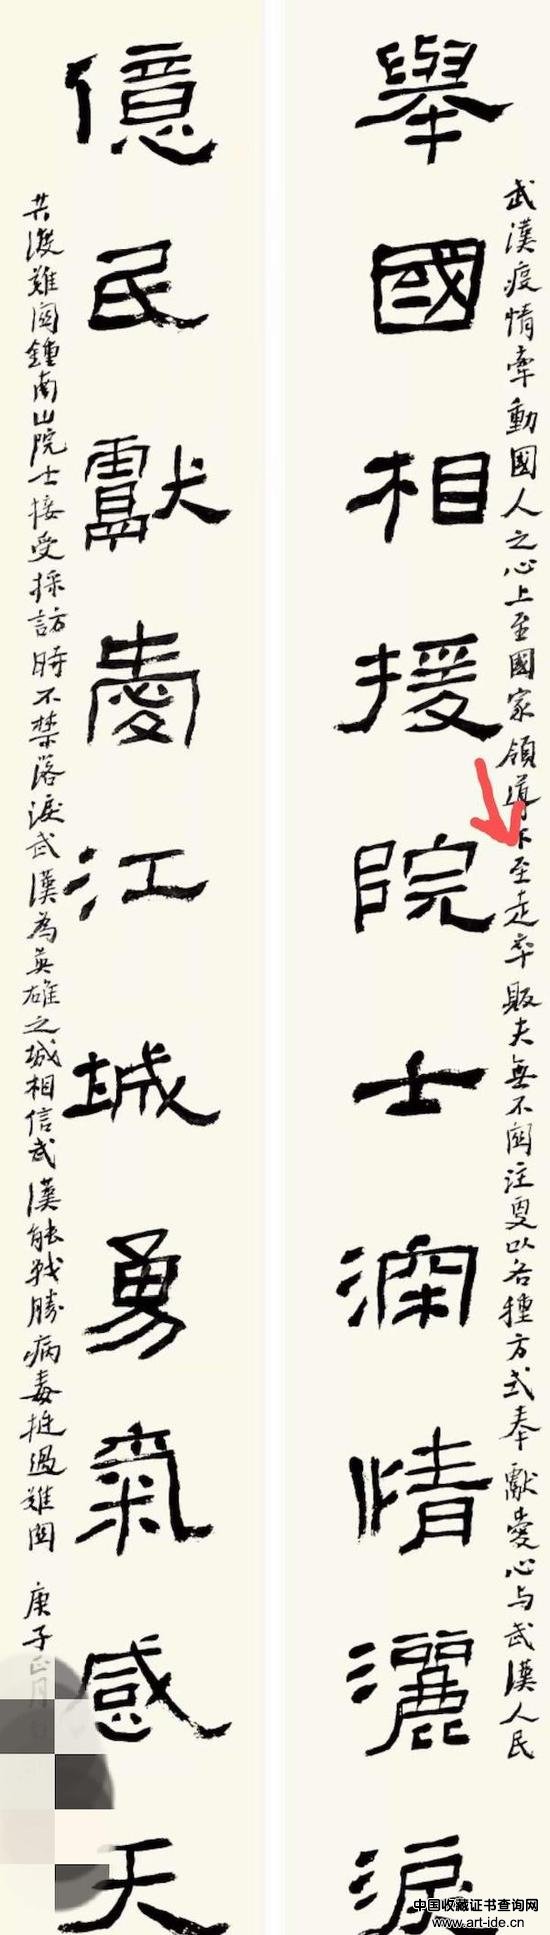 武漢疫情牽動國人之心上至國家領導下至走卒販夫無不関注更以各種方式奉獻愛心与武漢人民
舉國相援院士深情灑淚
億民獻愛江城勇氣感天
共渡難関鍾南山院士接受採訪時不禁落淚武漢為英雄之城相信武漢能戰勝病毒挺過難関 庚子正月
中国收藏证书查询网
www.art-ide.cn